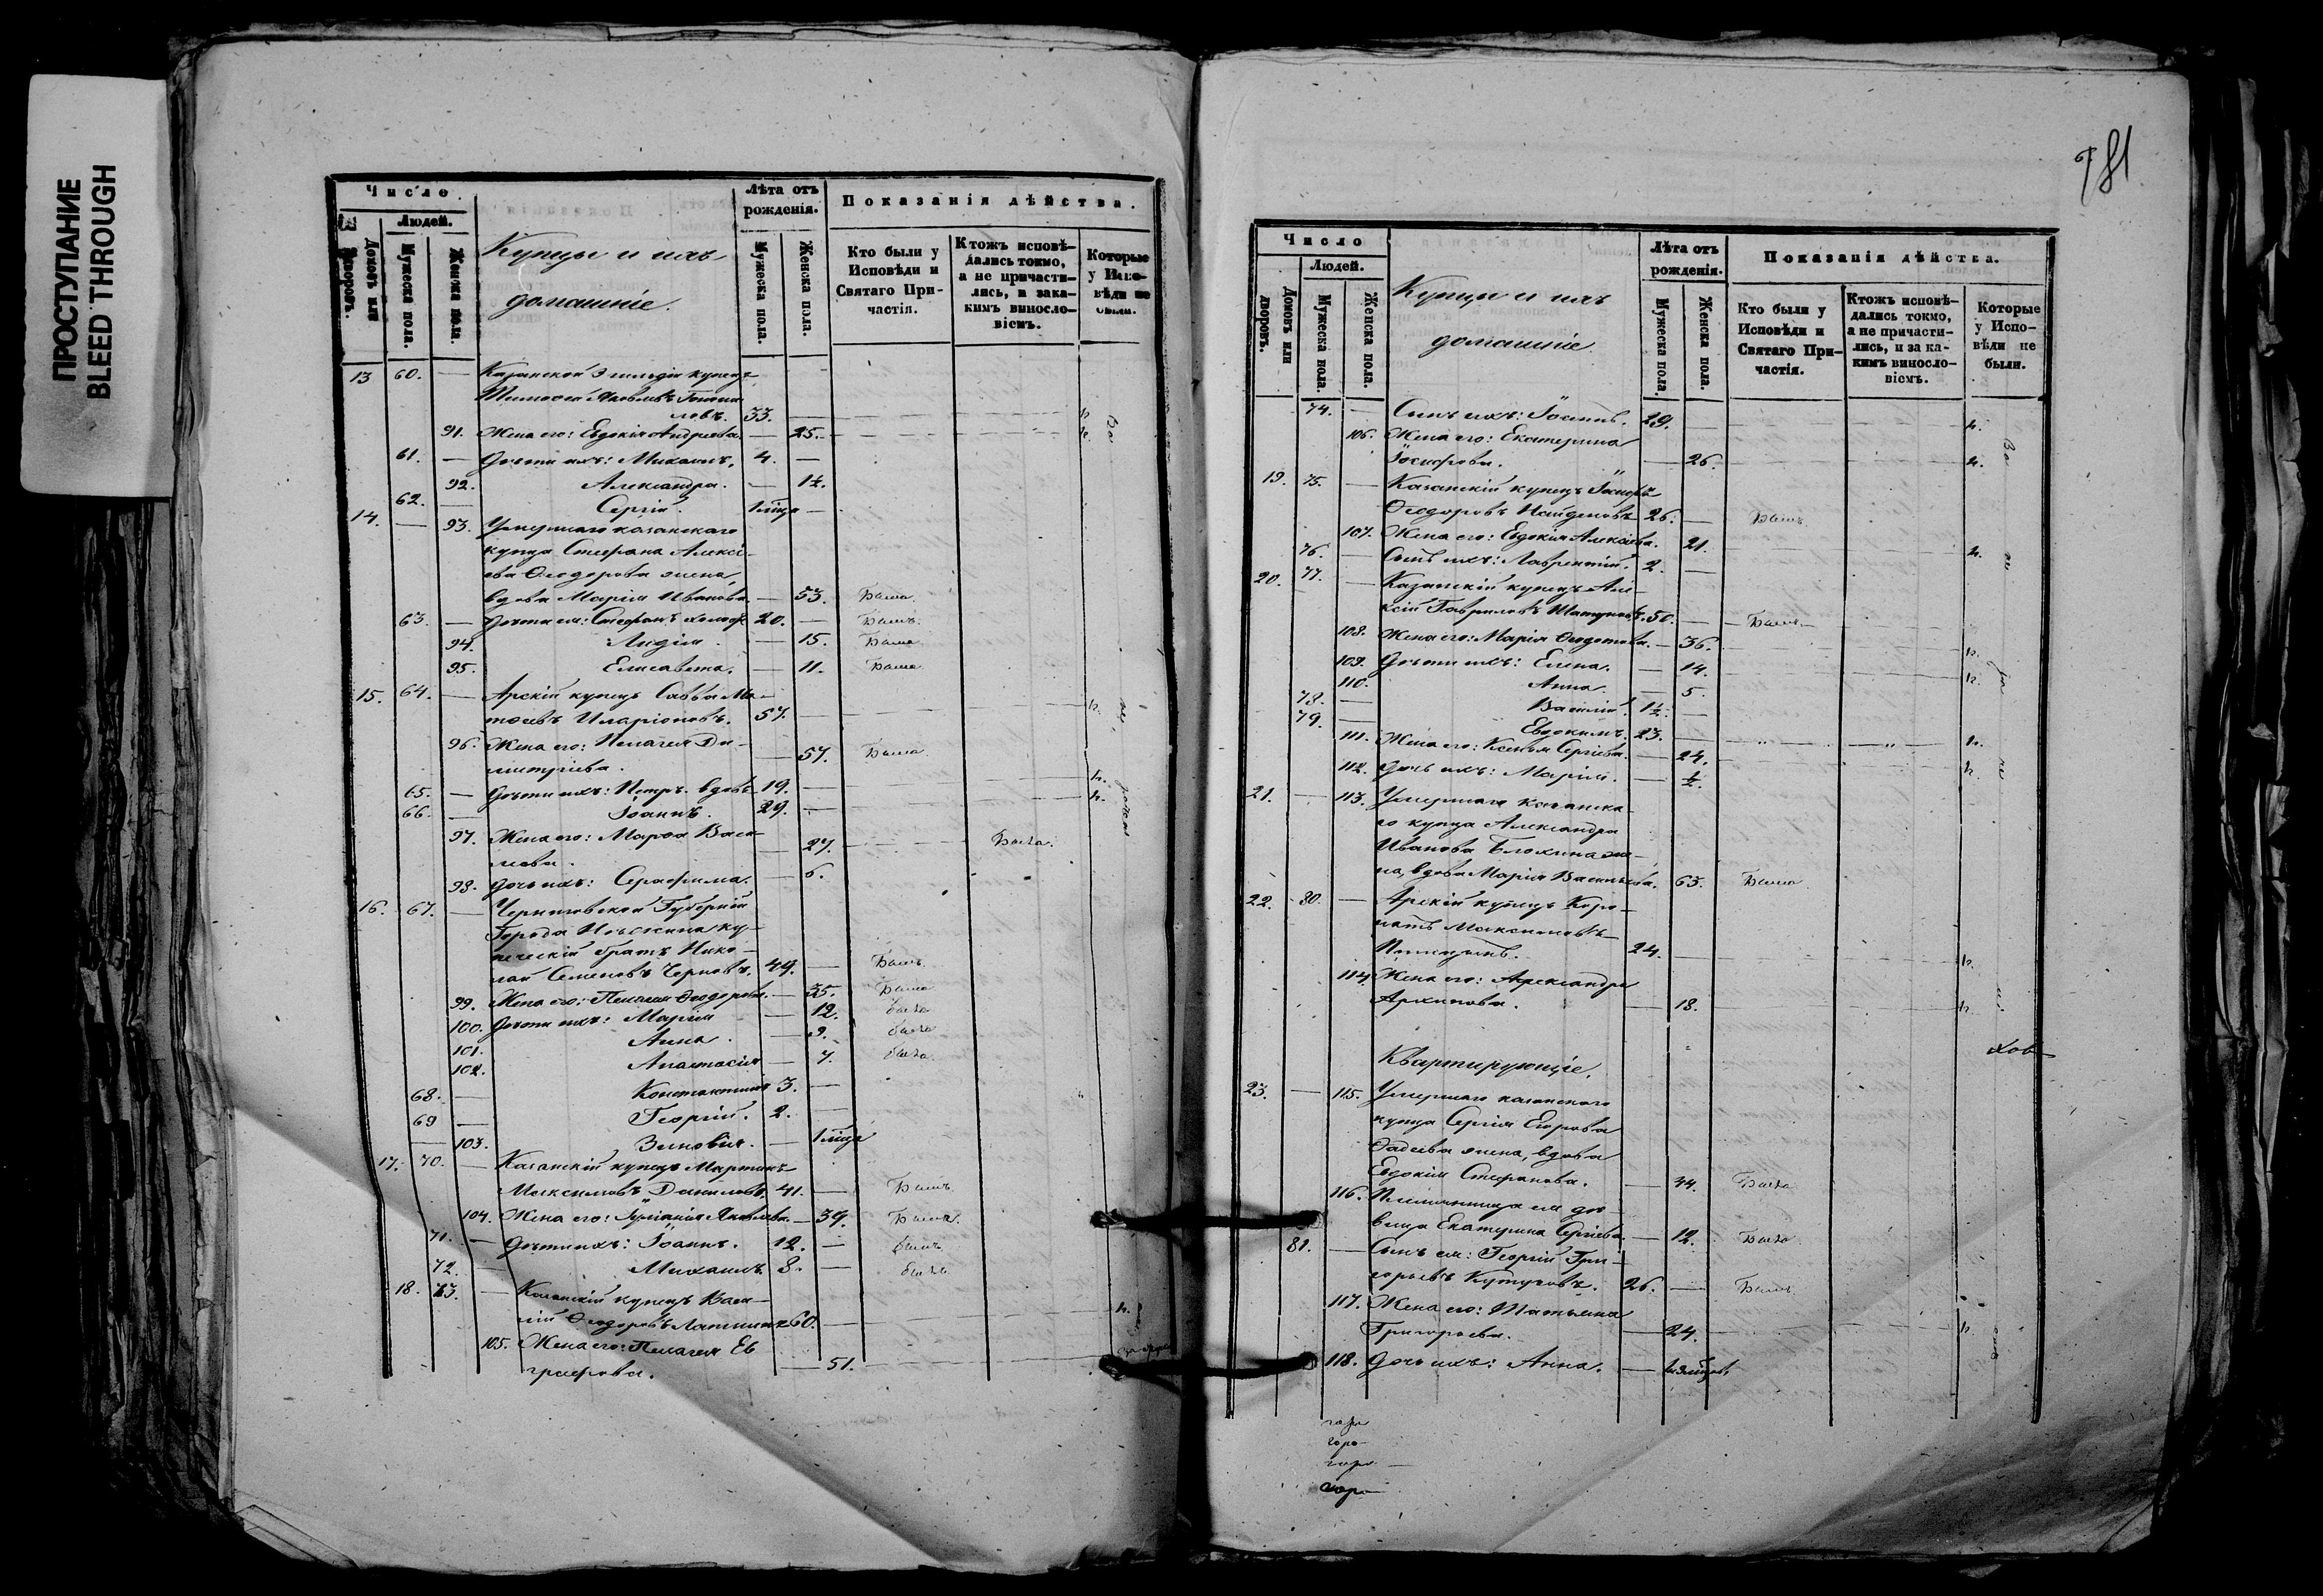 ПРОСТУПАНИЕ
BLEED THROUGH
Число.
Людей.
Домовъ или дворовъ.
Мужеска пола.
Женска пола.
Купцы и ихъ
домашніе.
Лѣта отъ
рожденія.
Мужеска пола.
Женска пола.
Показанія дѣйства.
Кто были у
Исповѣди и
Святаго При-
частія.
Ктожъ исповѣ-
дались токмо,
а не причасти-
лись, и зака-
кимъ виносло-
віемъ.
Которые
у Испо-
вѣди не
были.
13 60. — Казанской 3 гильдіи купецъ
Тимофей Яковлевъ
33. — н.
91. Жена его: Евдокія Андреева. — 25. — н.
61. — Дѣти ихъ: Михаилъ, 4. —
92. Александра. — 1½.
62. — Сергій. 1 мѣсц —
14. — 93. Умершаго казанскаго
купца Стефана Алексі-
ева Ѳеодорова жена,
вдова Марія Иванова. — 53. Была.
63. — Дѣти ея: Стефанъ холост 20. — Былъ.
94. Лидія. — 15. Была
95. Елисавета. — 11. Была
15. 64. — Арскій купецъ Савва Ма-
тѳеевъ Иларіоновъ. 57. — н.
96. Жена его: Пелагея Ди-
митріева. — 57. Была
65. — Дѣти ихъ: Петръ вдовъ 19. — н.
66. — Іоаннъ. 29. — н.
97. Жена его: Марѳа Васи-
льева. — 27. — Была.
98. Дочь ихъ: Серафима. — 6.
16. 67. — Черниговской Губерніи
Города ку-
печескій братъ Нико-
лай Семеновъ Черновъ. 49. — Былъ.
99. Жена его: Пелагея Ѳеодорова. — 35. Была
100. Дѣти ихъ: Марія — 12. была
101. Анна. — 9. была
102. Анастасія — 7. была.
68. — Константинъ 3. —
69 — Георгій. 2. —
— 103. Зиновія. — 1 мѣсц
17. 70. — Казанскій купецъ Мартинъ
Максимовъ Даниловъ. 41. — Былъ.
104. Жена его: Іуліанія Яковлева. — 39. Была.
71. — Дѣти ихъ: Іоаннъ. 12. — былъ
72. Михаилъ 8. — былъ
18. 73. — Казанскій купецъ Васи-
лій Ѳеодоровъ Латышинъ 60. — н.
105. Жена его: Пелагея Ев
графова. — 51.
781
Число
Людей.
Домовъ или дворовъ.
Мужеска пола.
Женска пола.
Купцы и ихъ
домашніе.
Лѣта отъ
рожденія.
Мужеска пола.
Женска пола.
Показанія дѣйства.
Кто были у
Исповѣди и
Святаго При-
частія.
Ктожъ исповѣ-
дались токмо,
а не причасти-
лись, и за ка-
кимъ виносло-
віемъ.
Которые
у Испо-
вѣди не
были.
74. — Сынъ ихъ: Іоаннъ. 29. — н.
106. Жена его: Екатерина
Іосифова. — 26. — н.
19. 75. — Казанскій купецъ Іосифъ
Ѳеодоровъ Найденовъ 26. — Былъ.
107. Жена его: Евдокія Алексіева. 21. — н.
76. — Сынъ ихъ: Лаврентій. 2. —
20. 77. — Казанскій купецъ Але-
ксій Гавриловъ 50. — Былъ —
108. Жена его: Марія Ѳеодотова. — 36. — н.
109. Дѣти ихъ: Елена. — 14. — н.
110. Анна. — 5.
78. — Василій. 1½. —
79. — Евдокимъ. 23. — н.
111. Жена его: Ксенія Сергіева. — 24. — н.
112. Дочь ихъ: Марія. — ½.
21. — 113. Умершаго казанска-
го купца Александра
Иванова Блохина же-
на, вдова Марія Васильева. 63. Была
22. 80. — Арскій купецъ
Максимовъ
24. — н.
114. Жена его: Александра
Архипова. — 18. — н.
Квартирующіе.
23. — 115. Умершаго казанскаго
купца Сергія Егорова
Ѳадѣева жена, вдова
Евдокія Стефанова. — 44. Была
116. Племянница ея дѣ-
вица Екатерина Сергіева. — 12. Была
81. — Сынъ ея: Георгій Гри-
горьевъ Кутузовъ. 26. — Былъ
117. Жена его: Татьяна
Григорьева. — 24. — н.
118. Дочь ихъ: Анна. —